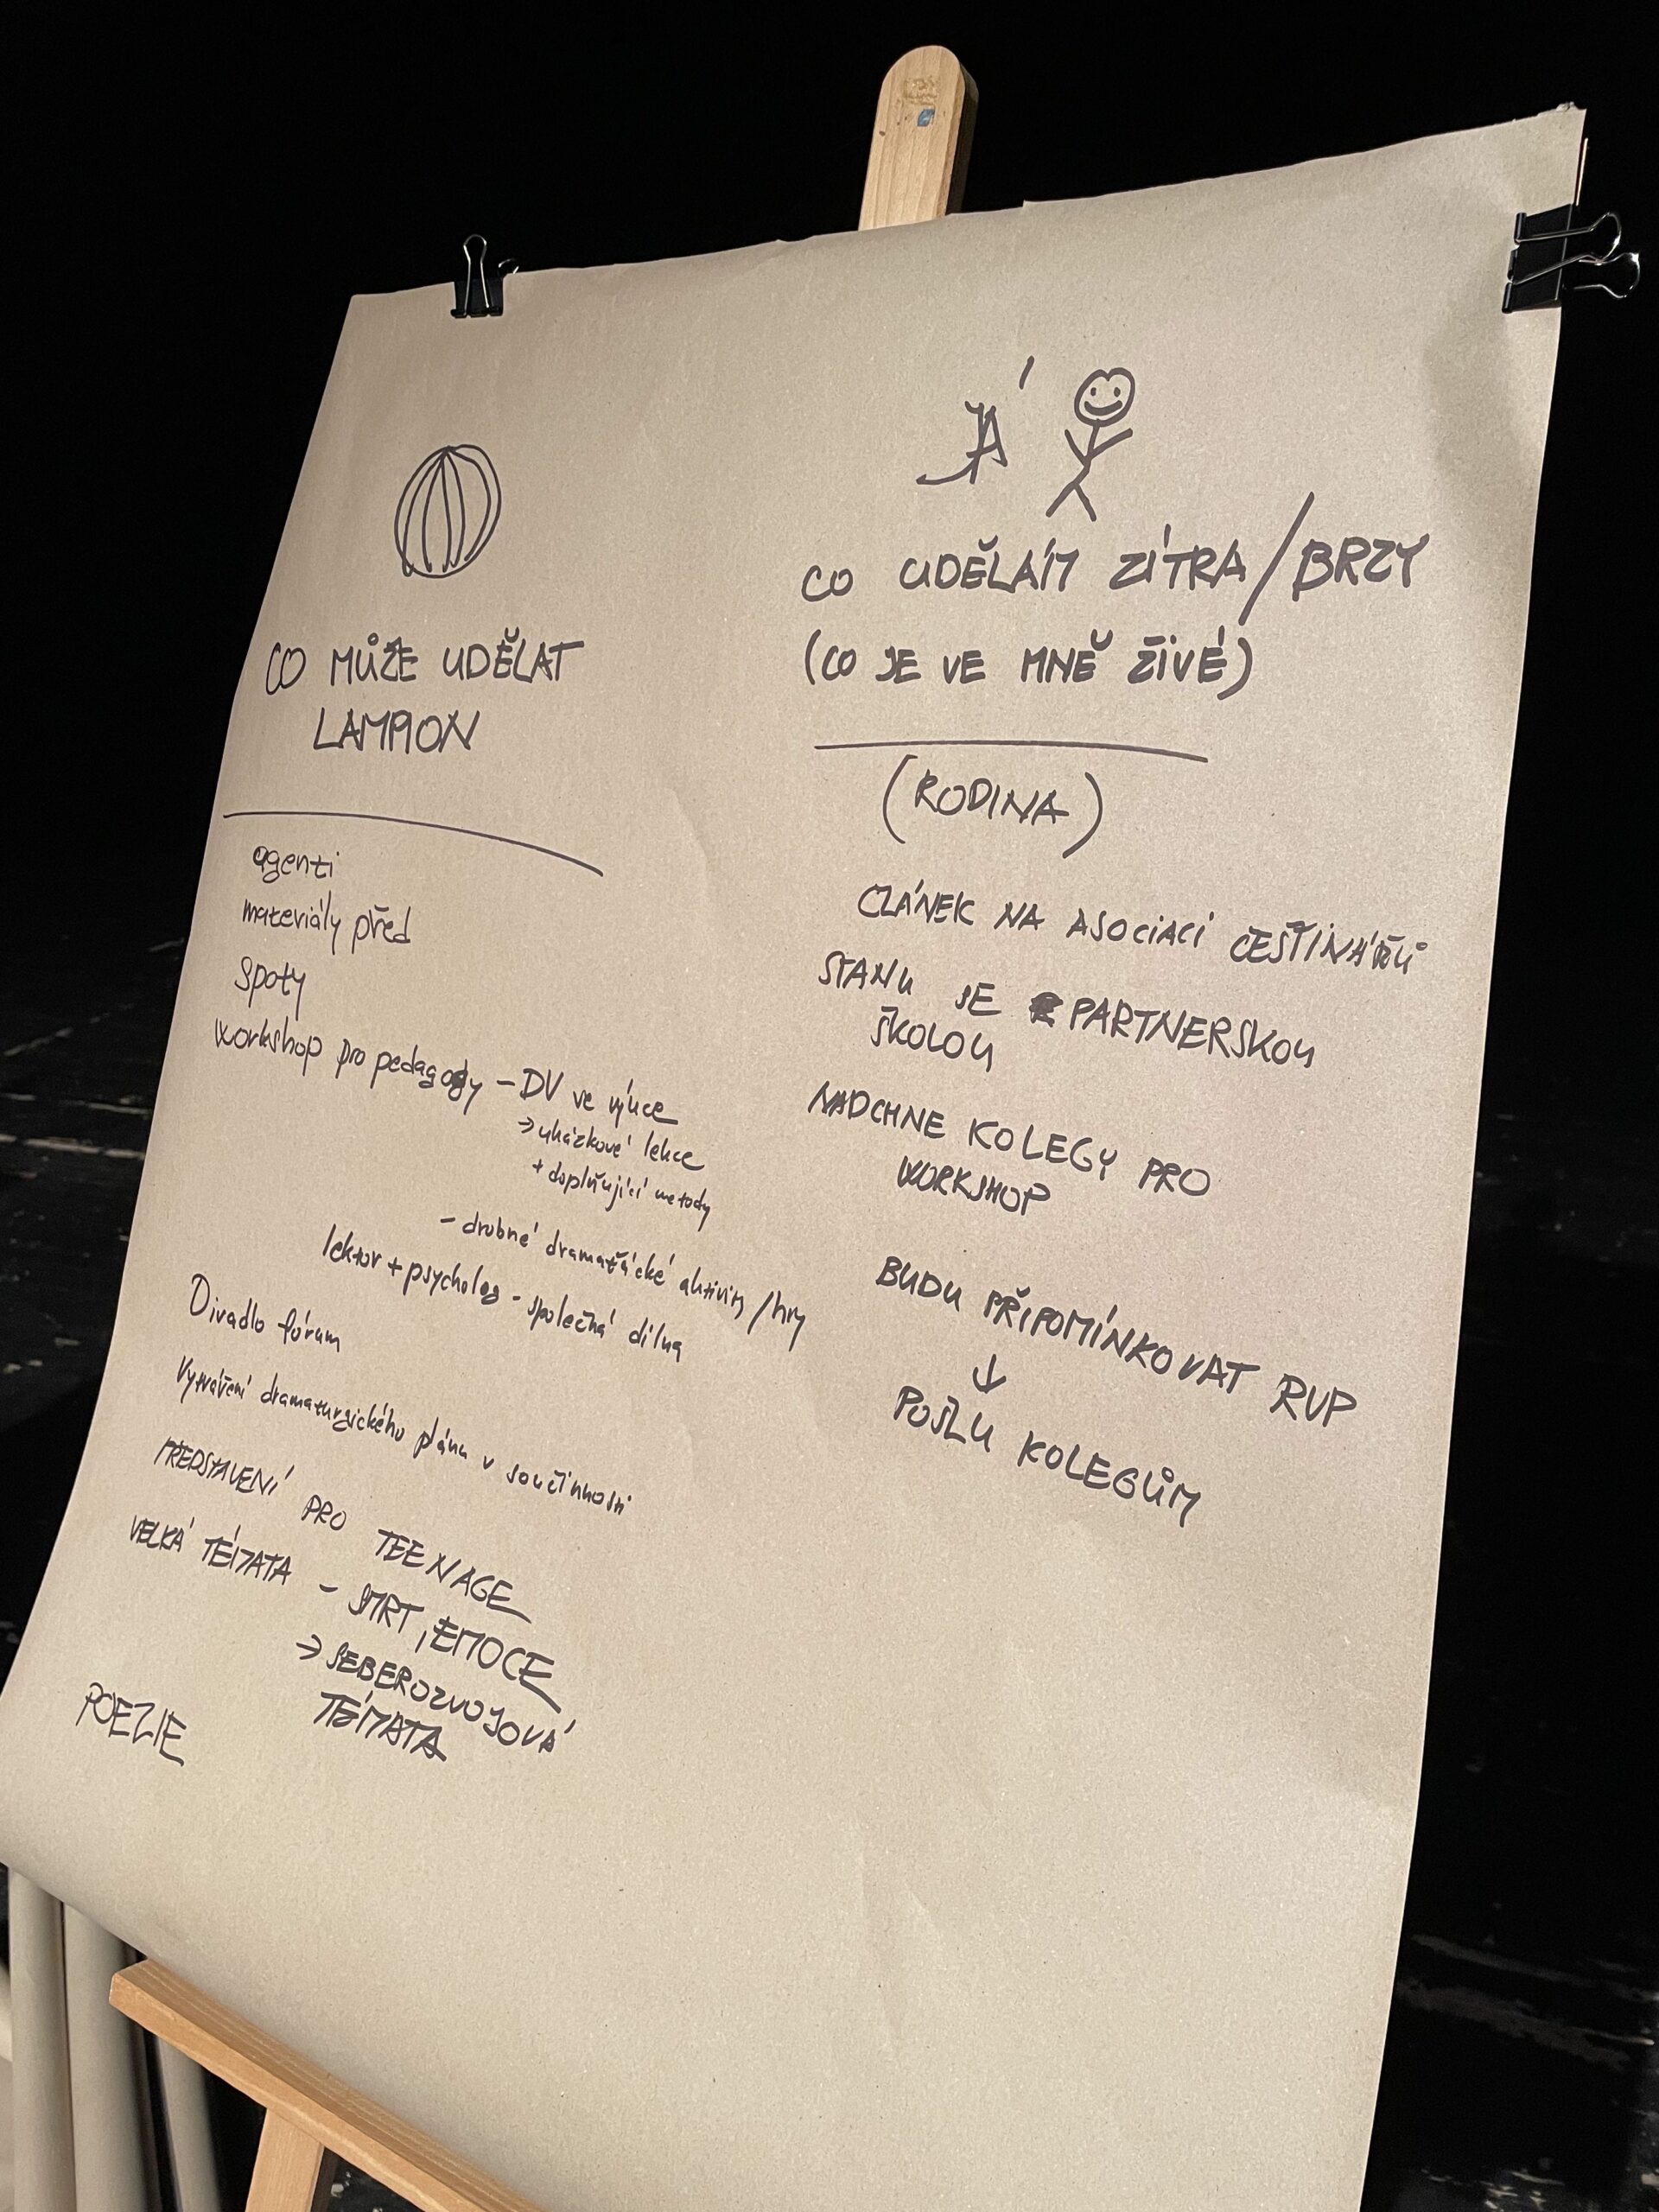 CO MŮŽE UDĚLAT
LAMPION
agenti
materiály před
spoty
workshop pro pedagogy - DV ve výuce
→ ukázkové lekce
+ doplňující metody
- drobné dramatické aktivity / hry
lektor + psycholog - společná dílna
Divadlo fórum
Vytváření dramaturgického plánu v součinnosti
PŘEDSTAVENÍ PRO TEENAGE
VELKÁ TÉMATA - SMRT, EMOCE
→ SEBEROZVOJOVÁ
TÉMATA
POEZIE
JÁ
CO UDĚLÁM ZÍTRA / BRZY
(CO JE VE MNĚ ŽIVÉ)
(RODINA)
ČLÁNEK NA ASOCIACI ČEŠTINÁŘŮ
STANU SE PARTNERSKOU
ŠKOLOU
NADCHNE KOLEGY PRO
WORKSHOP
BUDU PŘIPOMÍNKOVAT RVP
↓
POŠLU KOLEGŮM